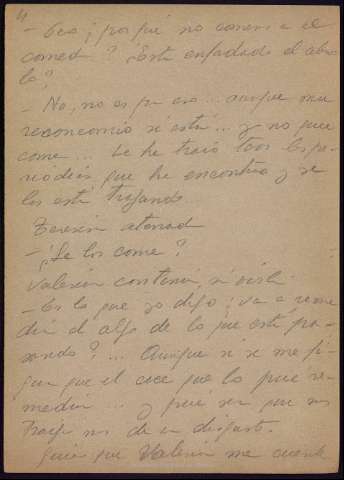 4
- Pero ¿por qué no comen en el
comed ? ¿Está enfadado el abue
lo?
- No, no es por eso ... aunque mu
reconcomio sí está ... y no quie
come ... Le he traio toos los pe
riodicos que he encontrao y se
los está tragando
Teresin aterrad
- ¿Se los come?
Valerian continúa, sin oirla
- Es lo que yo digo: ¿va a reme
diar el algo de lo que está pa
sando? ... Aunque a sí se me fi
gura que él cree que lo puee re
mediar ... y puee ser que nos
traiga más de un disgusto.
Quier que Valerian me cuente